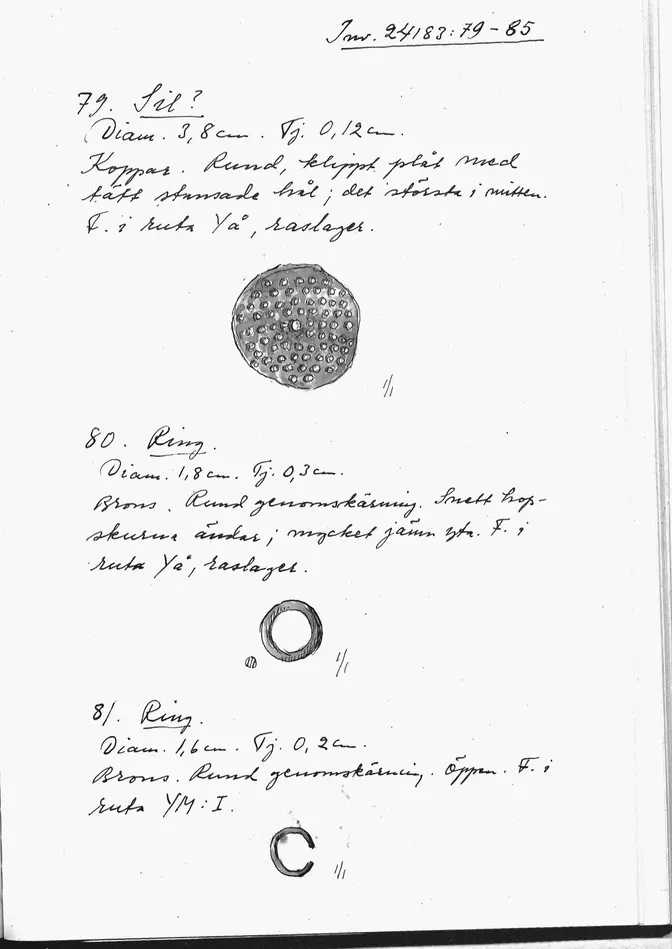 Inv. 24183:79-85
79. Sil?
Diam. 3,8 cm. Tj. 0,12 cm.
Koppar. Rund, klippt plåt med
tätt stansade hål; det största i mitten.
F. i ruta Yå, raslager.
1/1
80. Ring.
Diam. 1,8 cm. Tj. 0,3 cm.
Brons. Rund genomskärning. Snett hop-
skurna ändar; mycket jämn yta. F. i
ruta Yå, raslager.
1/1
81. Ring.
Diam. 1,6 cm. Tj. 0,2 cm.
Brons. Rund genomskärning. Öppen. F. i
ruta YM:I.
1/1